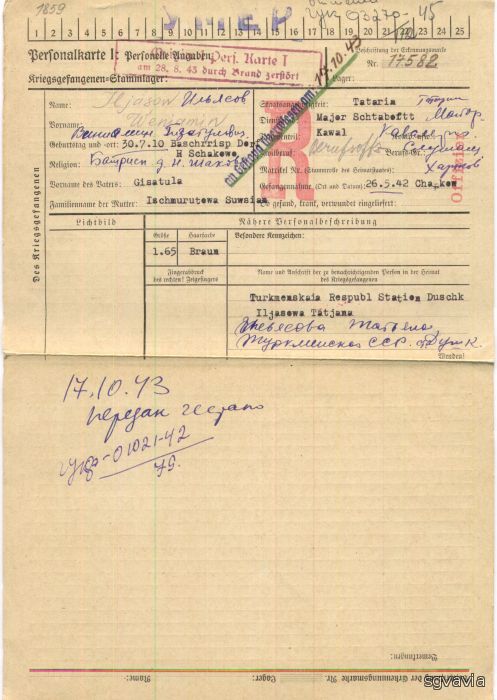 1859
УМЕР
УК 03270-45
1 2 3 4 5 6 7 8 9 10 11 12 13 14 15 16 17 18 19 20 21 22 23 24 25
Personalkarte I: Personelle Angaben
Perf. Karte I
am 28. 8. 43 durch Brand zerstört
Kriegsgefangenen-Stammlager:
Lager:
Beschriftung der Erkennungsmarke
Nr. 17582
17.10.43
Des Kriegsgefangenen
Name: Iljasow Ильясов
Vorname: Wenjamin
Geburtstag und -ort: 30.7.10 Baschrrisp Der
H Schakowe
Religion:
Vorname des Vaters: Gisatula
Familienname der Mutter: Ischmurutowa Suwsian
Staatsangehörigkeit: Tataria
Major Schtabeftt Майор
Kawal
Berufsoffz
Offizier
Matrikel Nr. (Stammrolle des Heimatstaates)
Харьков
Gefangennahme (Ort und Datum) 26.5.42 Cha kow
Ob gesund, krank, verwundet eingeliefert:
Lichtbild
Nähere Personalbeschreibung
Größe
Haarfarbe
Besondere Kennzeichen:
1.65
Braun
Fingerabdruck
des rechten! Zeigefingers
Name und Anschrift der zu benachrichtigenden Person in der Heimat
des Kriegsgefangenen
Turkmenskaia Respubl Station Duschk
Iljasowa Tatjana
Ильясова Татьяна
Туркменская ССР.
Wenden!
17.10.43
передан гестапо
01021-42
Bemerkungen:
Name:
Lager:
der Erkennungsmarke Nr.
sgvavia